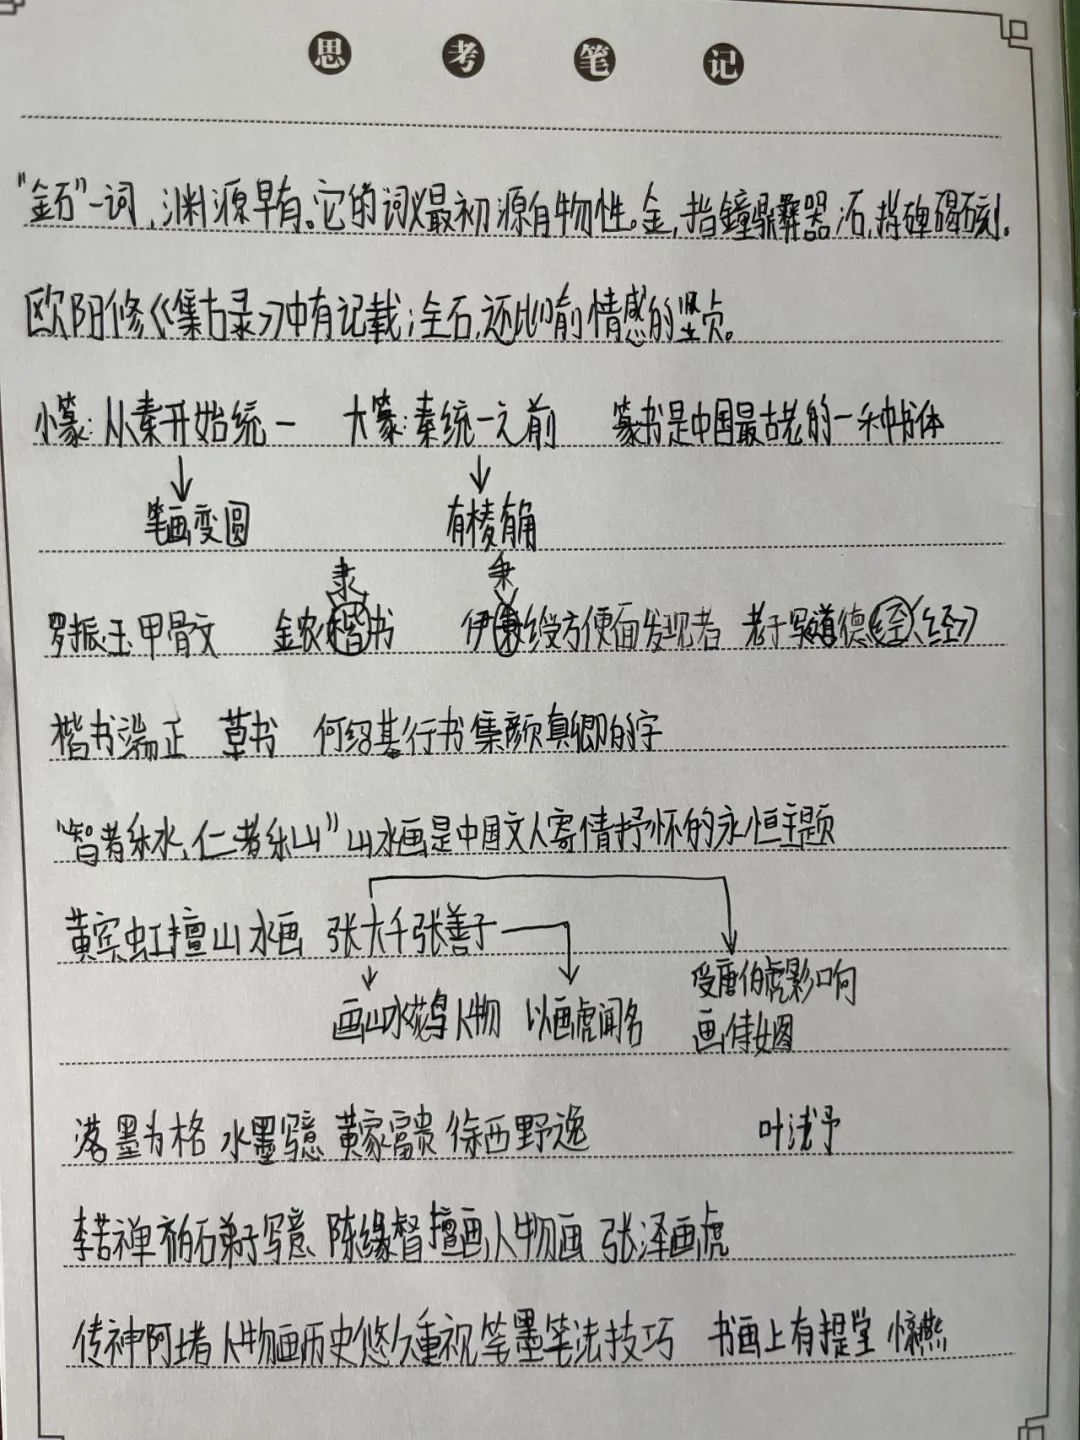 思考笔记
"金石"一词，渊源早有。它的词义最初源自物性。金，指鐘鼎彝器；石，指碑碣石刻。
欧阳修《集古录》中有记载；金石，还比喻情感的坚贞。
小篆：从秦开始统一 大篆：秦统一之前 篆书是中国最古老的一种书体
笔画变圆 有棱有角
隶 秉
罗振玉甲骨文 金农楷书 伊秉绶方便面发现者 老子写道德经(经)
楷书端正 草书 何绍基行书集颜真卿的字
"智者乐水，仁者乐山"山水画是中国文人寄情抒怀的永恒主题
黄宾虹擅山水画 张大千张善子
画山水花鸟人物 以画虎闻名 受唐伯虎影响
画侍女图
落墨为格 水墨写意 黄家富贵 徐西野逸 叶浅予
李苦禅齐白石弟子写意 陈缘督擅画人物画 张泽画虎
传神阿堵 人物画历史悠久重视笔墨笔法技巧 书画上有提堂